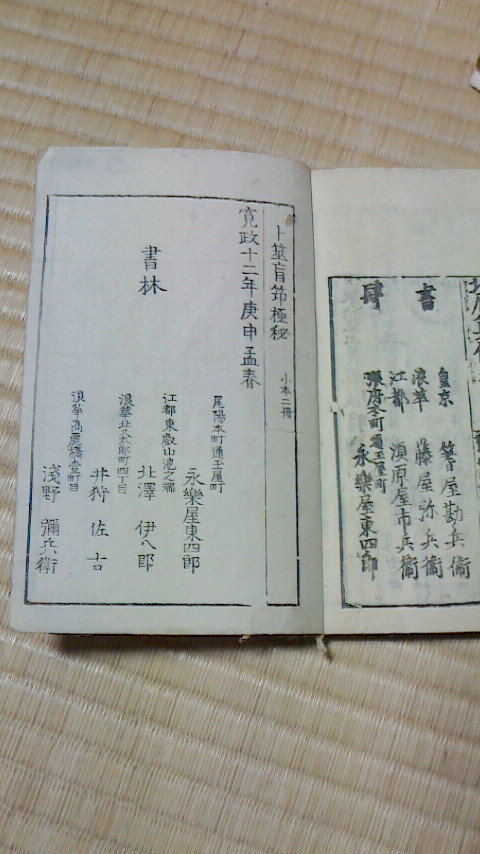 書肆
皇京
浪華 藤屋弥兵衞
江都 須原屋市兵衞
永樂屋東四郎
卜筮盲笻極秘 小本二冊
寛政十二年庚申孟春
書林
尾陽本町通玉屋町
永樂屋東四郎
江都東叡山池之端
北澤伊八郎
浪華北久太郎町四丁目
井狩佐吉
浪華高麗橋壹町目
淺野彌兵衞